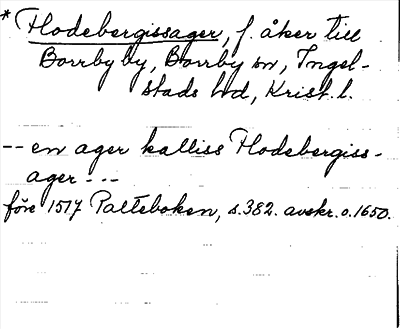 * Hodebergissager, f. åker till
Borrby by, Borrby sn, Ingel-
stads hd, Krist. l.
-- en ager kalliss Hodebergiss-
ager ---
före 1517 Palteboken, s. 382. avskr. o. 1650.